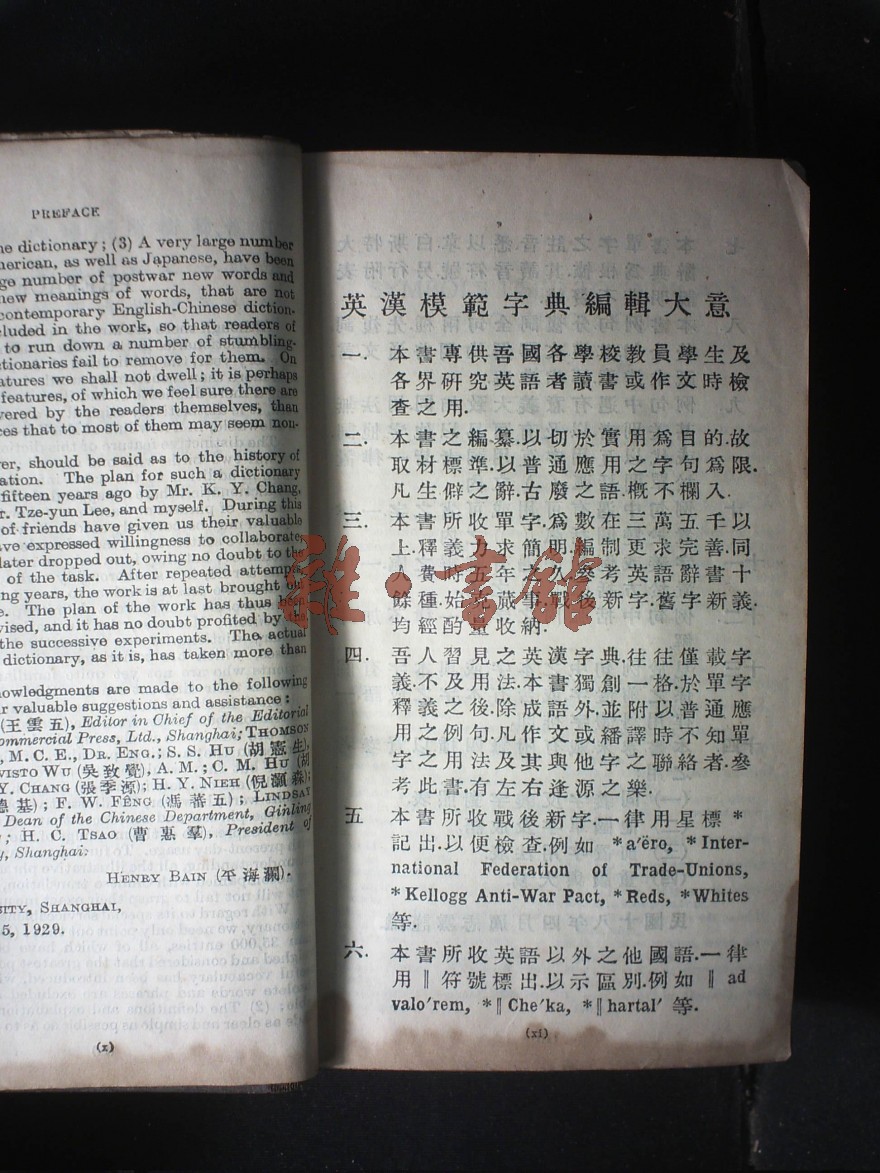 PREFACE
e dictionary; (3) A very large number
merican, as well as Japanese, have been
ge number of postwar new words and
new meanings of words, that are not
contemporary English-Chinese diction-
cluded in the work, so that readers of
to run down a number of stumbling-
ctionaries fail to remove for them. On
atures we shall not dwell; it is perhaps
features, of which we feel sure there are
vered by the readers themselves, than
ces that to most of them may seem non-
ver, should be said as to the history of
ation. The plan for such a dictionary
fifteen years ago by Mr. K. Y. Chang,
r. Tze-yun Lee, and myself. During this
of friends have given us their valuable
ve expressed willingness to collaborate,
later dropped out, owing no doubt to the
of the task. After repeated attempts
ng years, the work is at last brought out
e. The plan of the work has thus been
vised, and it has no doubt profited by the
the successive experiments. The actual
dictionary, as it is, has taken more than
nowledgments are made to the following
r valuable suggestions and assistance:
(王雲五), Editor in Chief of the Editorial
ommercial Press, Ltd., Shanghai; THOMSON
, M. C. E., DR. ENG.; S. S. HU (胡憲生),
VISTO WU (吳致覺), A. M.; C. M. HU (胡
Y. CHANG (張季源); H. Y. NIEH (倪灝森);
德基); F. W. FÊNG (馮蕃五); LINDSAY
Dean of the Chinese Department, Ginling
; H. C. TSAO (曹惠羣), President of
y, Shanghai.
HENRY BAIN (平海瀾).
SITY, SHANGHAI,
5, 1929.
(x)
英漢模範字典編輯大意
一. 本書專供吾國各學校教員學生及
各界研究英語者讀書或作文時檢
查之用.
二. 本書之編纂.以切於實用爲目的.故
取材標準.以普通應用之字句爲限.
凡生僻之辭.古廢之語.概不欄入.
三. 本書所收單字.爲數在三萬五千以
上.釋義力求簡明.編制更求完善.同
人費時五年之久.參考英語辭書十
餘種.始克蕆事.戰後新字.舊字新義.
均經酌量收納.
四. 吾人習見之英漢字典.往往僅載字
義.不及用法.本書獨創一格.於單字
釋義之後.除成語外.並附以普通應
用之例句.凡作文或繙譯時不知單
字之用法及其與他字之聯絡者.參
考此書.有左右逢源之樂.
五 本書所收戰後新字.一律用星標*
記出.以便檢查.例如 *a′ëro, *Inter-
national Federation of Trade-Unions,
*Kellogg Anti-War Pact, *Reds, *Whites
等.
六. 本書所收英語以外之他國語.一律
用‖符號標出.以示區別.例如 ‖ad
valo′rem, *‖Che′ka, *‖hartal′ 等.
(xi)
雜·書館